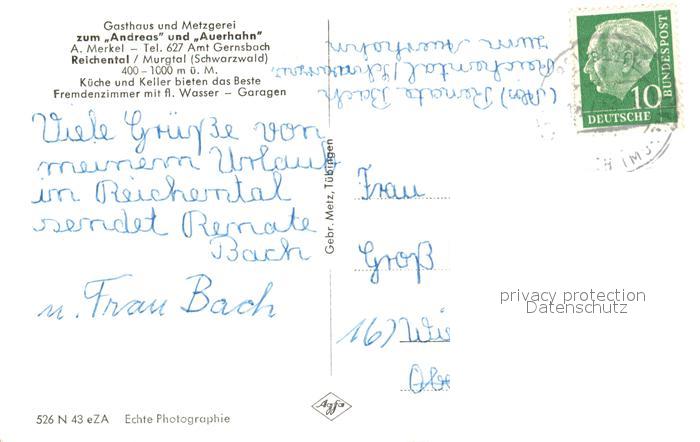 Gasthaus und Metzgerei
zum „Andreas" und „Auerhahn"
A. Merkel – Tel. 627 Amt Gernsbach
Reichental / Murgtal (Schwarzwald)
400 – 1000 m ü. M.
Küche und Keller bieten das Beste
Fremdenzimmer mit fl. Wasser – Garagen
Viele Grüße von
meinem Urlaub
im Reichental
sendet Renate
Bach
u. Frau Bach
526 N 43 eZA Echte Photographie
Gebr. Metz, Tübingen
Agfa
Renate Bach
Reichental/Schwarzw.
zum Auerhahn
10
DEUTSCHE
BUNDESPOST
Frau
Groß
16) Wie
Obe
privacy protection
Datenschutz